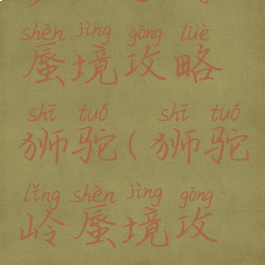 shèn jìng gōng lüè
蜃境攻略
shī tuó shī tuó
狮驼(狮驼
lǐng shèn jìng gōng
岭蜃境攻